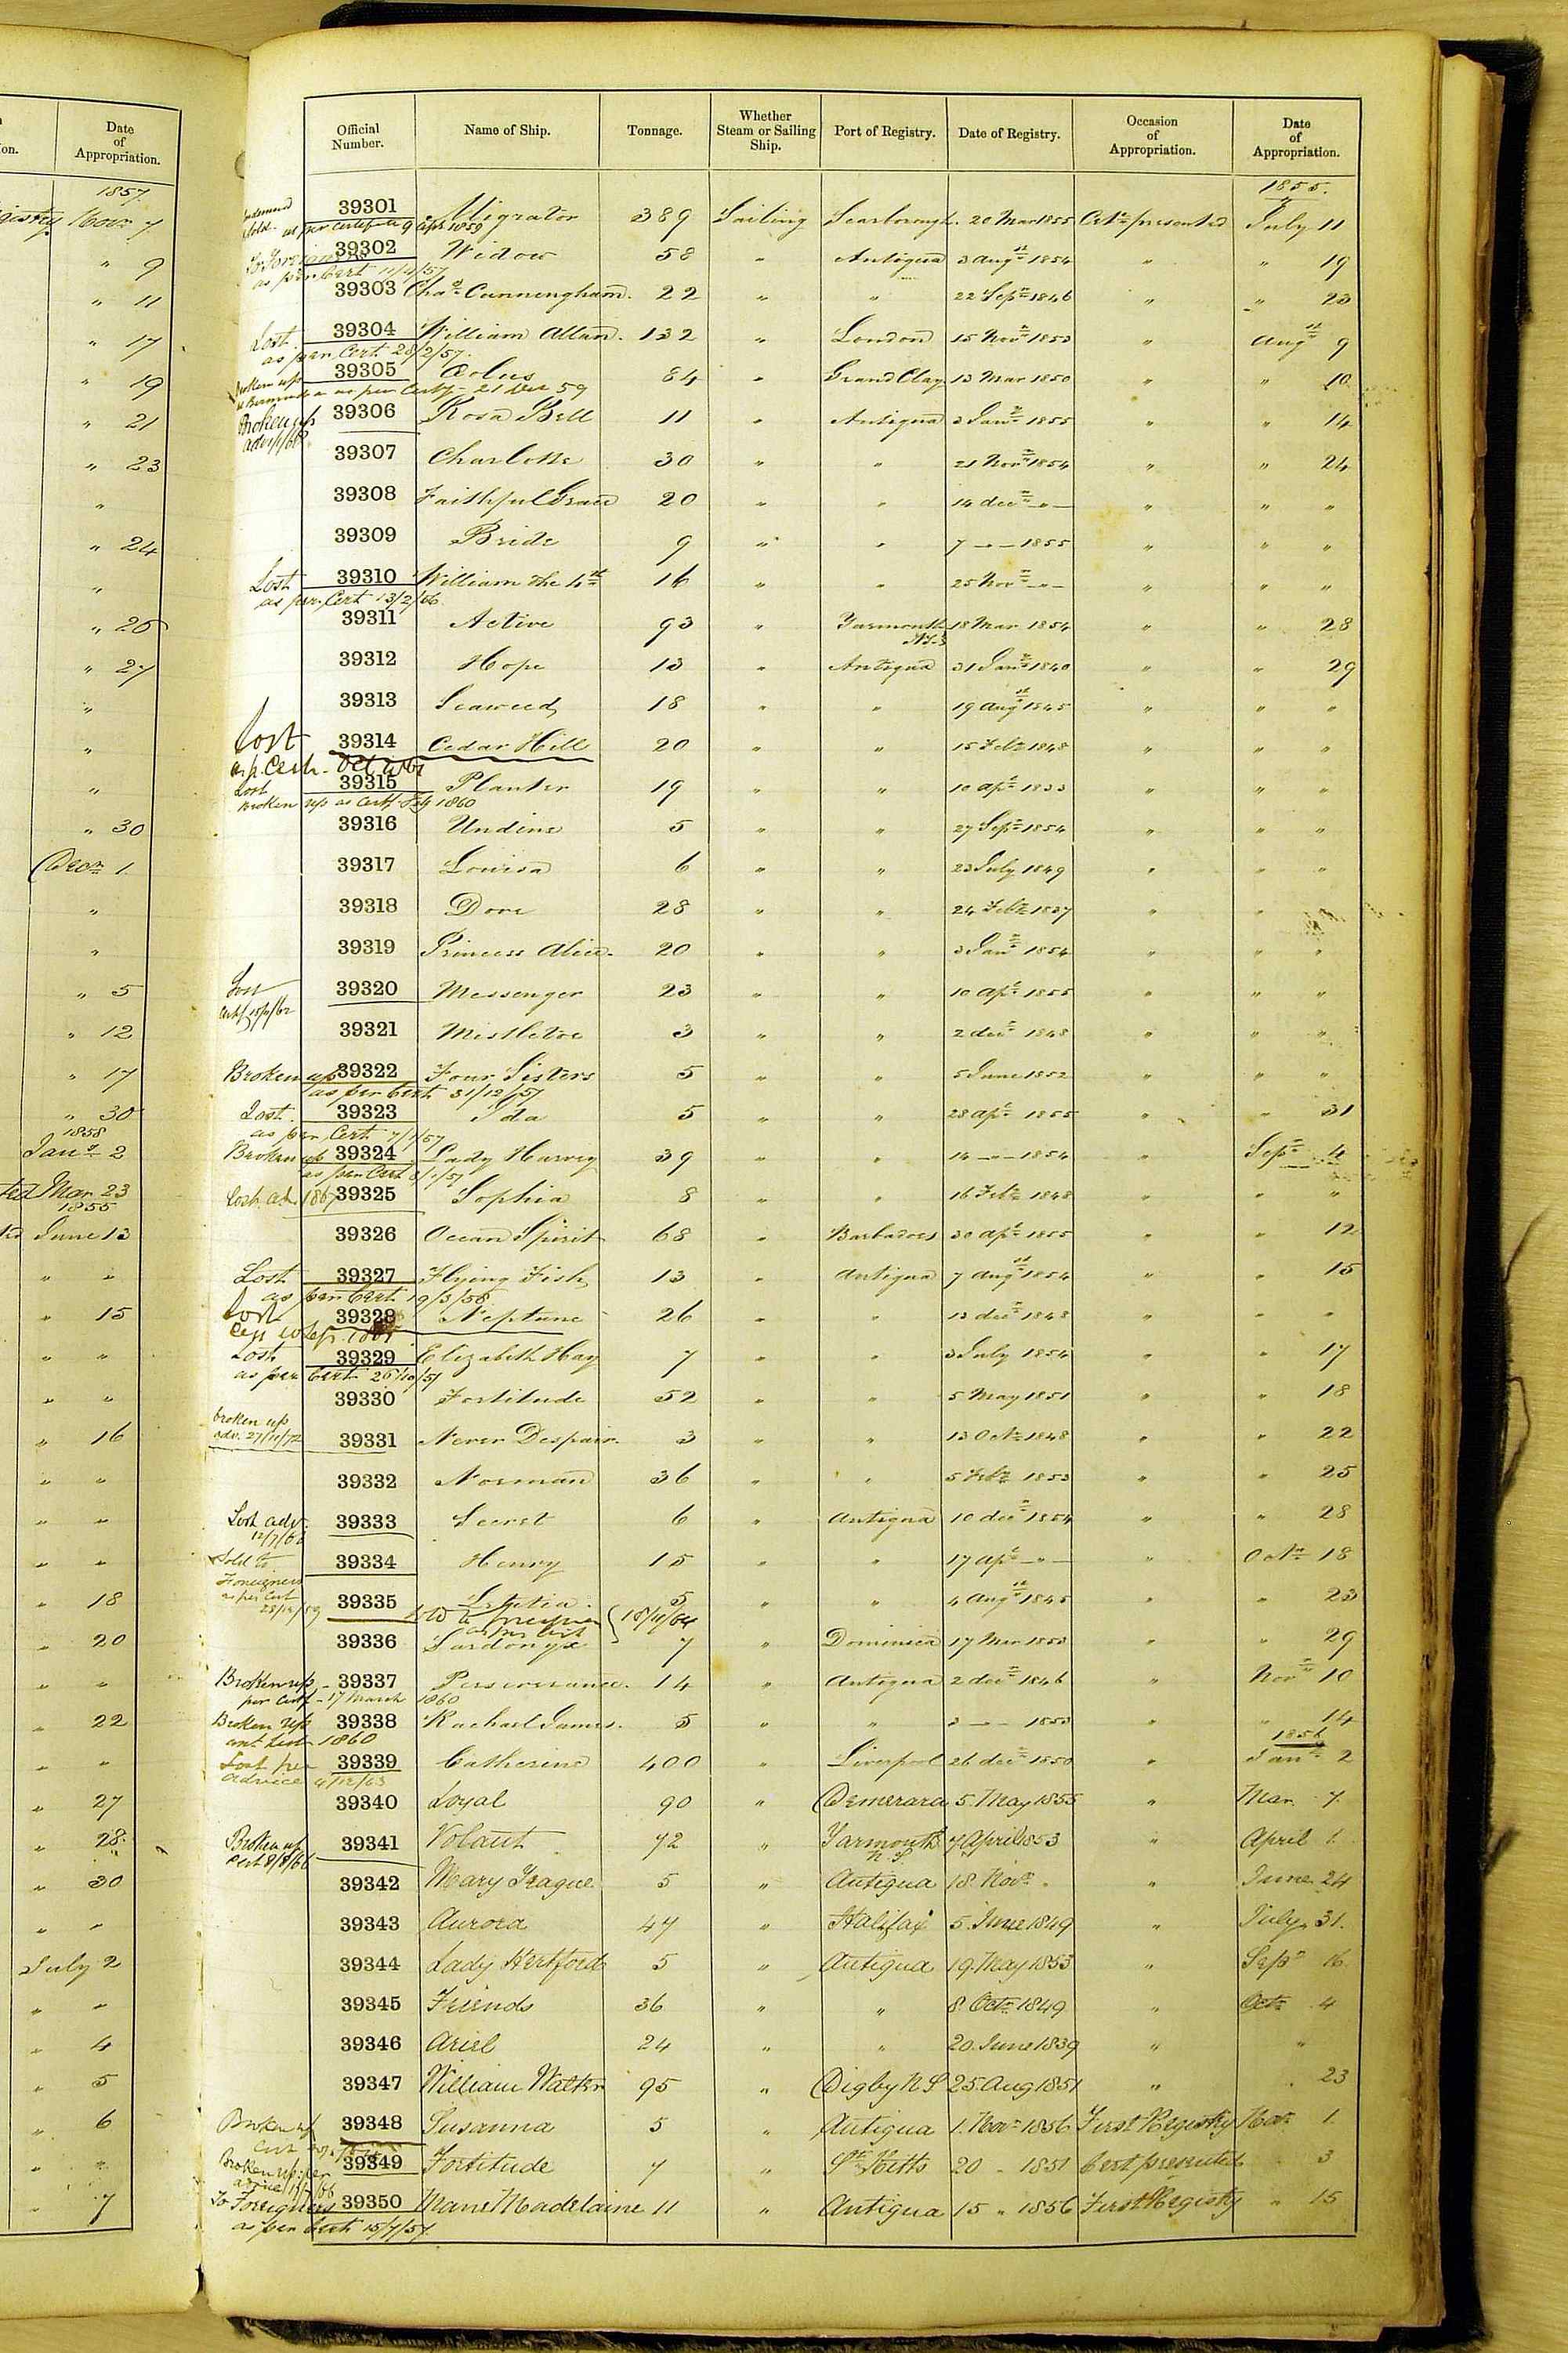 Date of Appropriation.
1857
Novr 7
" 9
" 11
" 17
" 19
" 21
" 23
"
" 24
"
" 26
" 27
"
"
"
" 30
Decr 1
"
"
" 5
" 12
" 17
" 30
1858
Jany 2
Mar 23
1855
June 13
" "
" 15
" "
" "
" 16
" "
" "
" "
" 18
" 20
" "
" 22
" "
" 27
" 28
" 30
" "
July 2
" "
" 4
" 5
" 6
" "
" 7
Official Number. Name of Ship. Tonnage. Whether Steam or Sailing Ship. Port of Registry. Date of Registry. Occasion of Appropriation. Date of Appropriation.
1855.
39301 Migrator 389 Sailing Scarborough 20 Mar 1855 Certe presented July 11
sold as per certificate 9 Apr 1859
To Foreigners 39302 Widow 58 " Antigua 3 Augst 1854 " " 19
as per Cert 11/4/57
39303 Chas Cunningham. 22 " " 22 Sepr 1846 " " 23
Lost 39304 William Allan. 132 " London 15 Novr 1853 " Augst 9
as per Cert 28/2/57.
Broken up 39305 Œolus 84 " Grand Clay 13 Mar 1850 " " 10
at Bermuda as per Certf - 21 Decr 59
Broken up 39306 Rosa Bell 11 " Antigua 3 Jany 1855 " " 14
39307 Charlotte 30 " " 21 Novr 1854 " " 24
39308 Faithful Grace 20 " " 14 decr " " " "
39309 Bride 9 " " 7 " 1855 " " "
Lost 39310 William the 4th 16 " " 25 Novr " " " "
as per Cert 13/2/56
39311 Active 93 " Yarmouth N.S. 18 Mar 1854 " " 28
39312 Hope 13 " Antigua 31 Jany 1840 " " 29
39313 Seaweed 18 " " 19 Augst 1845 " " "
Lost 39314 Cedar Hill 20 " " 15 Feby 1848 " " "
as p. Certe - Oct 1861
Lost 39315 Planter 19 " " 10 apl 1833 " " "
Broken up as Certf Feby 1860
39316 Undine 5 " " 27 Sepr 1854 " " "
39317 Louisa 6 " " 23 July 1849 " " "
39318 Dove 28 " " 24 Feby 1837 " " "
39319 Princess Alice. 20 " " 3 Jany 1854 " " "
Lost 39320 Messenger 23 " " 10 apl 1855 " " "
39321 Mistletoe 3 " " 2 decr 1848 " " "
Broken up 39322 Four Sisters 5 " " 5 June 1852 " " "
as per Cert 31/12/57
Lost 39323 Ida 5 " " 28 apl 1855 " " 31
as per Cert 7/7/57
Broken up 39324 Lady Harvey 39 " " 14 " 1854 " Sepr 4
as per Cert 8/1/57
Lost ad. 1867 39325 Sophia 8 " " 16 Feby 1848 " " "
39326 Ocean Spirit 68 " Barbadoes 30 apl 1855 " " 12
Lost 39327 Flying Fish 13 " Antigua 7 Augst 1854 " " 15
as per Cert 19/3/58
Lost 39328 Neptune 26 " " 13 decr 1848 " " "
Lost 39329 Elizabeth Hay 7 " " 3 July 1854 " " 17
as per Cert 26/10/57
39330 Fortitude 52 " " 5 May 1851 " " 18
broken up
adv. 27/11/72 39331 Never Despair. 3 " " 13 Octr 1848 " " 22
39332 Norman 36 " " 5 Feby 1853 " " 25
Lost adv. 39333 Secret 6 " Antigua 10 decr 1854 " " 28
12/7/66
Sold to 39334 Henry 15 " " 17 apl " " Octr 18
Foreigners
as per Cert 39335 Letitia 5 " " 4 Augst 1845 " " 23
28/12/59 Sold to foreigners as per cert 18/11/64
39336 Sardonyx 7 " Dominica 17 Mar 1853 " " 29
Broken up - 39337 Perseverance. 14 " Antigua 2 decr 1846 " Novr 10
per Certf - 17 March 1860
Broken up 39338 Rachael James. 5 " " 3 " 1853 " " 14
1860
1856
Lost per 39339 Catherine 400 " Liverpool 26 decr 1850 " Jany 2
advice 9/12/63
39340 Loyal 90 " Demerara 5. May 1855 " Mar 7.
Broken up 39341 Volant 72 " Yarmouth N.S. 7 April 1853 " April 1.
Cert 8/8/66
39342 Mary Teague 5 " Antigua 18. Novr " " June 24
39343 Aurora 47 " Halifax 5. June 1849 " July 31.
39344 Lady Hertford 5 " Antigua 19. May 1853 " Sepr 16
39345 Friends 36 " " 8. Octr 1849 " Octr 4
39346 Ariel 24 " " 20. June 1839 " "
39347 William Walter 95 " Digby N S 25. Aug 1851 " " 23
Broken up 39348 Susanna 5 " Antigua 1. Novr 1856 First Registry Novr 1.
Broken up per 39349 Fortitude 7 " St Kitts 20 " 1851 Cert presented " 3
To Foreigners 39350 Marie Madelaine 11 " Antigua 15 " 1856 First Registry " 15
as per Cert 15/7/57